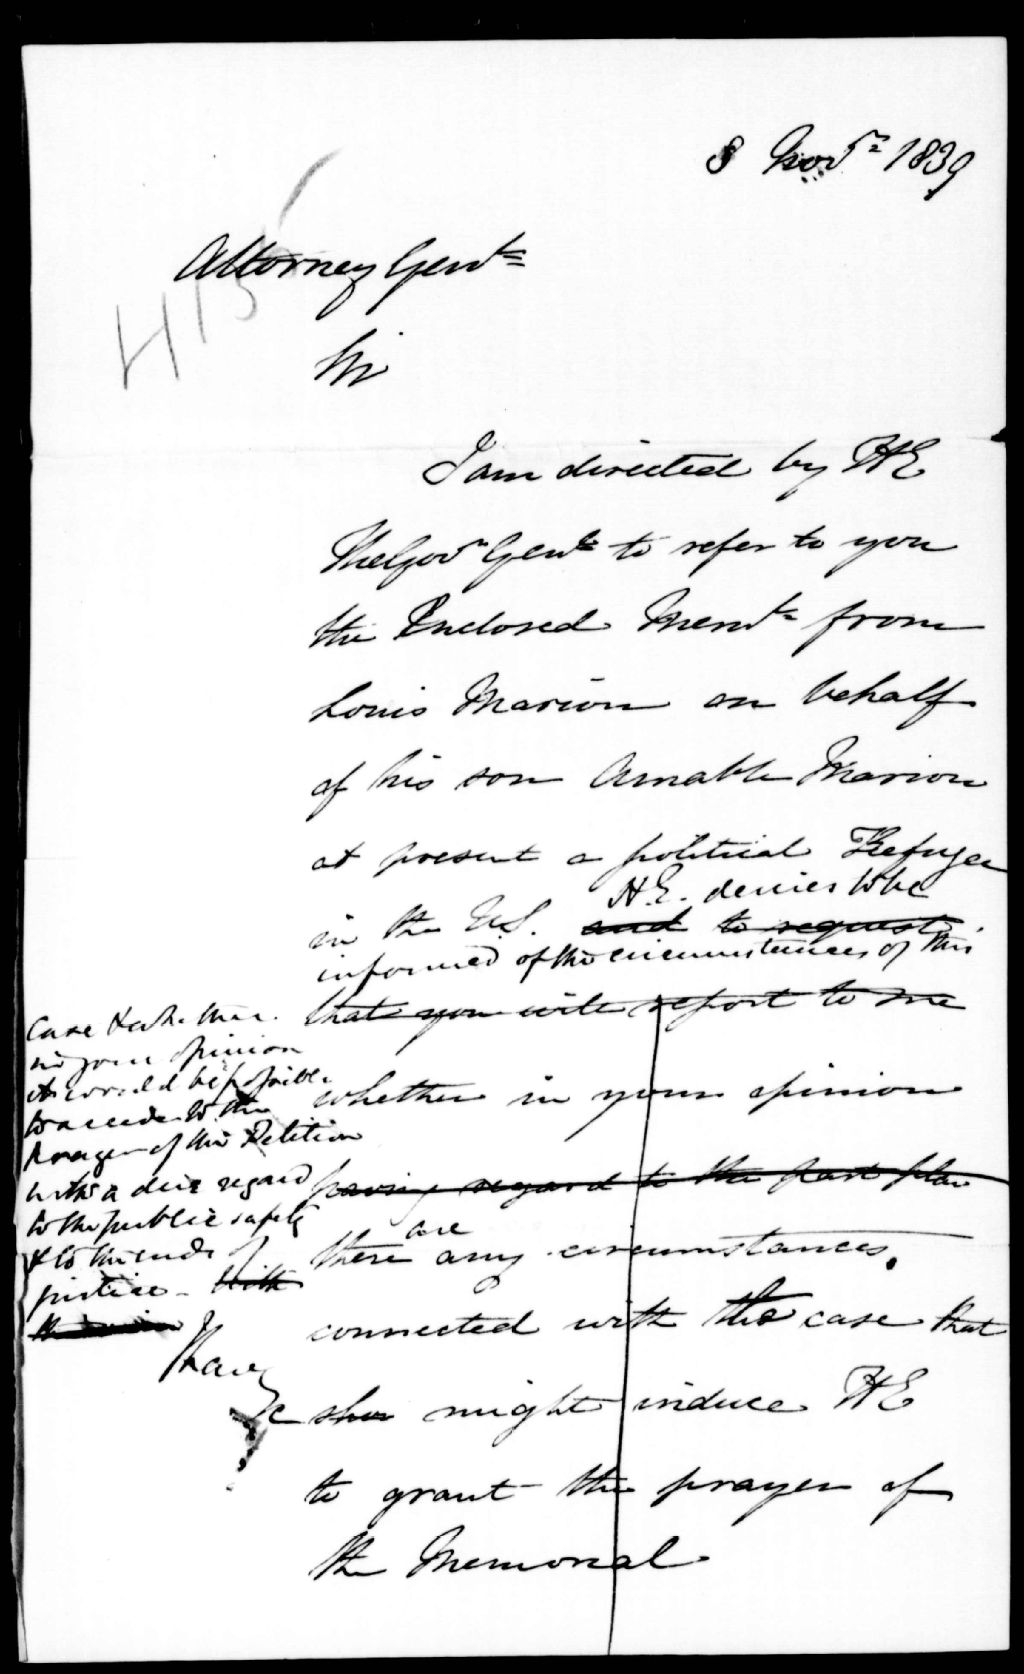 8 Novr 1839
415
Attorney Genl
Sir
I am directed by HE
The Govr Genl to refer to you
the Enclosed Meml from
Louis Marion on behalf
of his son Amable Marion
at present a political Refugee
H.E. desires to be
in the U.S. and to request
informed of the circumstances of this
that you will report to me
case & whether
in your opinion
it would be possible
to accede to the
prayer of this Petition
with a due regard
to the public safety
& to the ends of
justice - With
I have
&c
whether in your opinion
having regard to the past
are
there any circumstances
connected with the case that
might induce HE
to grant the prayer of
the Memorial